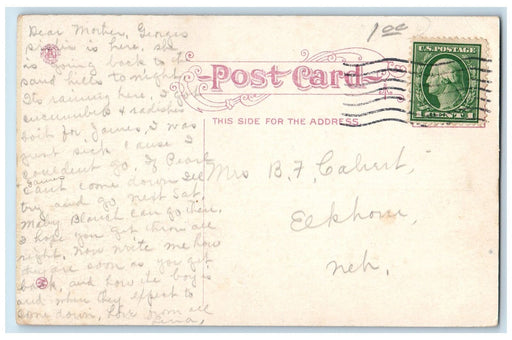 Dear Mother, Georges
sister is here. she
is going back to the
sand hills to night.
Its raining here. I got
cucumbers & radishes
for James, I was
just sick cause I
couldent go. If Pearl
& James
cant come down Ill
try and go next Sat.
Maby Blanch can go then.
I hope you get there all
right. Now write me how
they are soon as you get
back, and how the boy is
and when they expect to
come down, Love from all
Lena,
1 00
Post Card
THIS SIDE FOR THE ADDRESS.
U.S. POSTAGE
1 CENT 1
Mrs B. F. Calvert,
Elkhorn,
Neb.